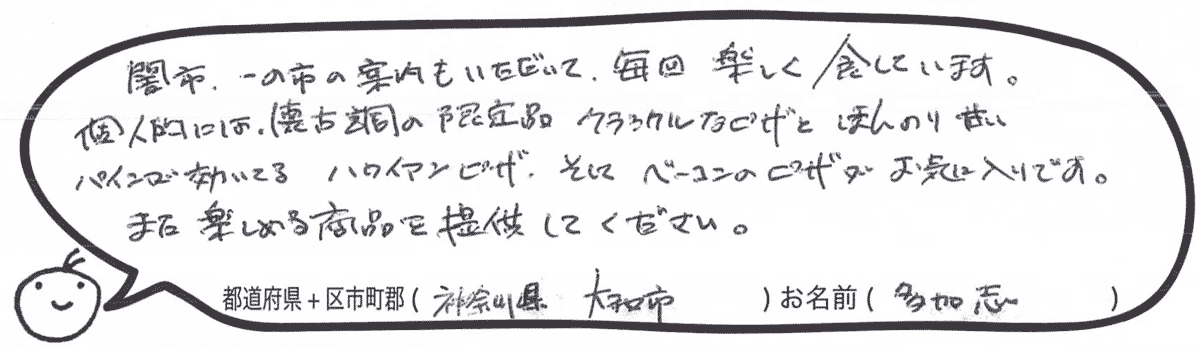 闇市、一の市の案内もいただいて、毎回 楽しく 食しています。
個人的には、懐古調の限定品 クラックルなピザと ほんのり甘い
パインが効いてる ハワイアンピザ、そして ベーコンのピザが お気に入りです。
また 楽しめる商品を提供してください。
都道府県+区市町郡( 神奈川県 大和市 )お名前( 多加志 )